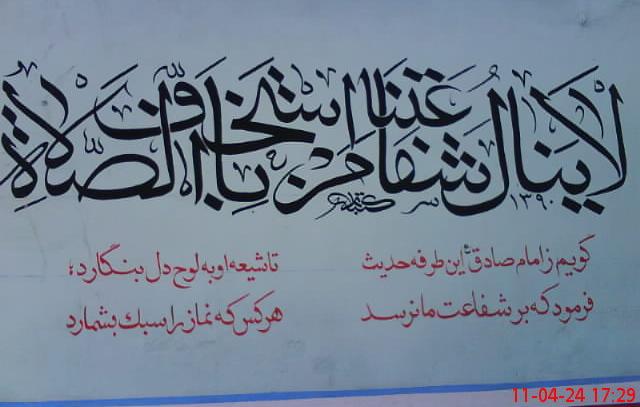 لا يَنَالُ شَفَاعَتَنَا مَنِ اسْتَخَفَّ بِالصَّلَاةِ
۱۳۹۰
گویم ز امام صادق این طرفه حدیث تا شیعه او به لوح دل بنگارد؛
فرمود که بر شفاعت ما نرسد هر کس که نماز را سبک بشمارد
11-04-24 17:29